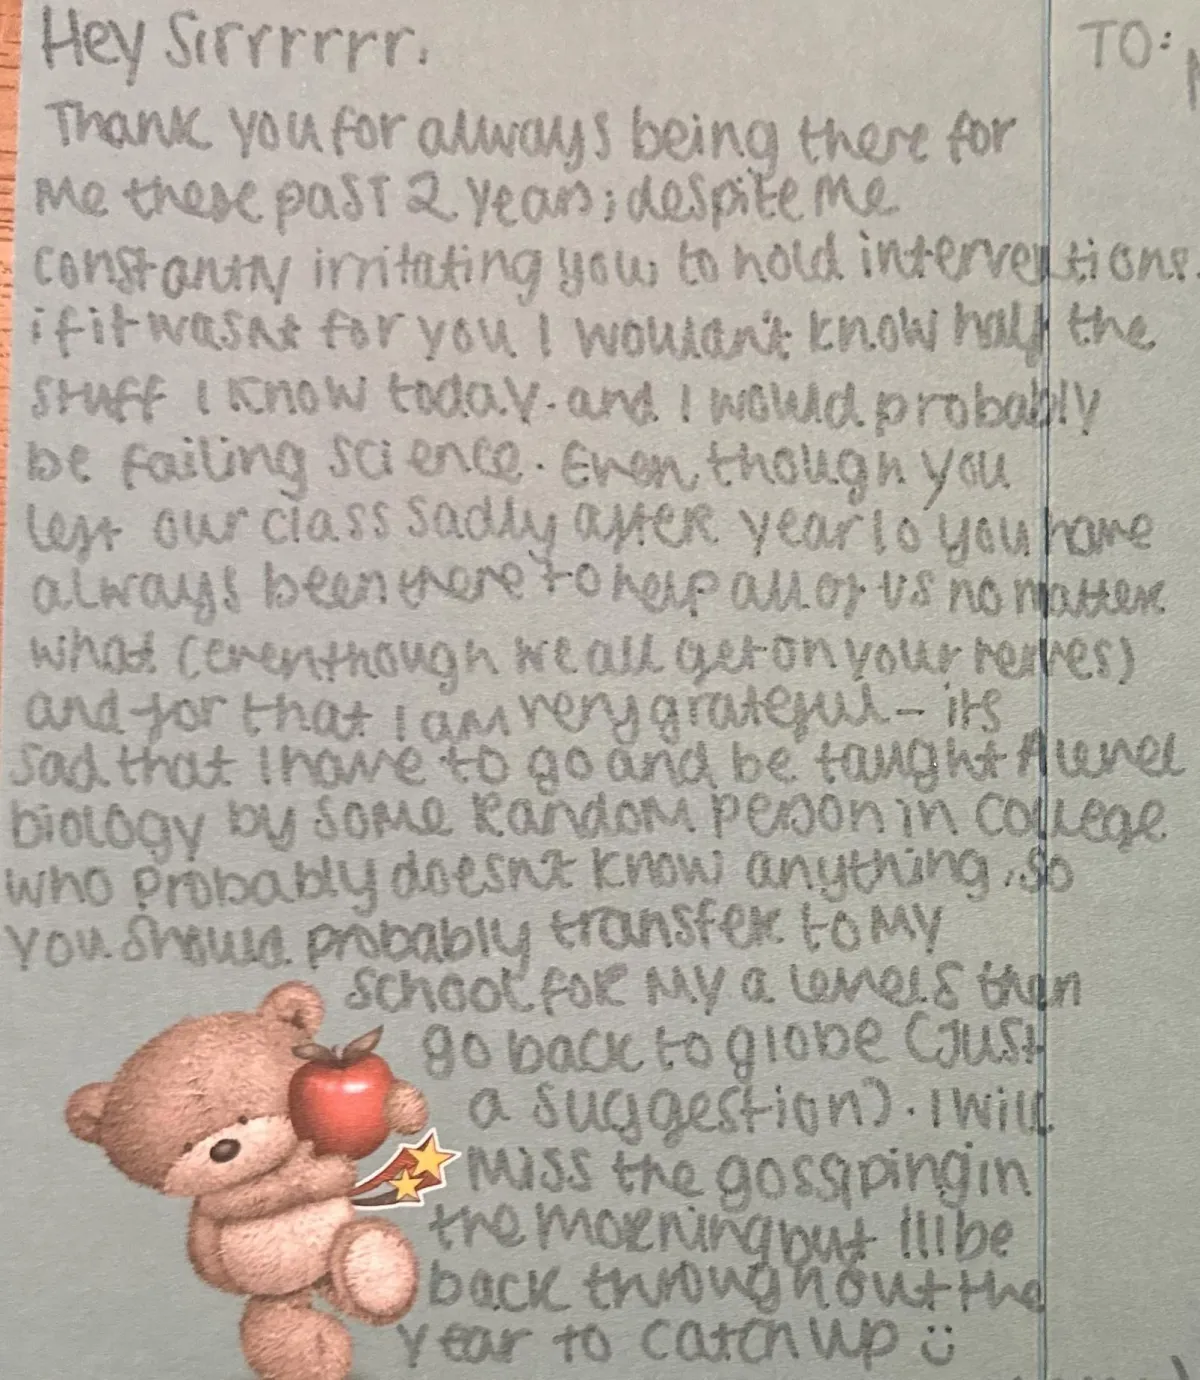 Hey Sirrrrrr.
TO:
Thank you for always being there for
me these past 2 years; despite me
constantly irritating you, to hold interventions.
if it wasnt for you I wouldn't know half the
stuff I know today. and I would probably
be failing science. Even though you
left our class sadly after year 10 you have
always been there to help all of us no matter
what (even though we all get on your nerves)
and for that I am very grateful - its
sad that I have to go and be taught A level
biology by some random person in college
who probably doesn't know anything, so
you should probably transfer to my
school for my a levels then
go back to globe (just
a suggestion). I will
miss the gossiping in
the morning but I'll be
back throughout the
year to catch up :)